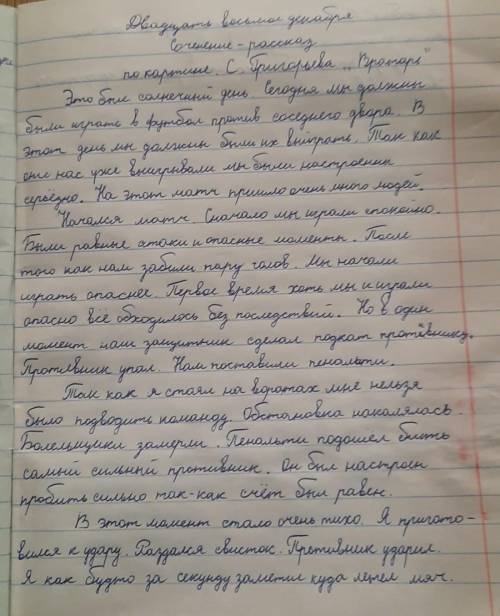 Двадцать восьмое декабря
Сочинение-рассказ
по картине. С. Григорьева „Вратарь"
Это был солнечный день. Сегодня мы должны
были играть в футбол против соседнего двора. В
этот день мы должны были их выиграть. Так как
они нас уже выигрывали мы были настроенны
серьёзно. На этот матч пришло очень много людей.
Начался матч. Сначало мы играли спокойно.
Были равные атаки и опасные моменты. После
того как нам забили пару голов. Мы начали
играть опаснее. Первое время хоть мы и играли
опасно всё обходилось без последствий. Но в один
момент наш защитник сделал подкат протёвнику.
Противник упал. Нам поставили пенальти.
Так как я стоял на воротах мне нельзя
было подводить команду. Обстановка накалялась.
Болельщики замерли. Пенальти подошел бить
самый сильный противник. Он был настроен
пробить сильно так-как счёт был равен.
В этот момент стало очень тихо. Я пригото-
вился к удару. Раздался свисток. Противник ударил.
Я как будто за секунду заметил куда летел мяч.